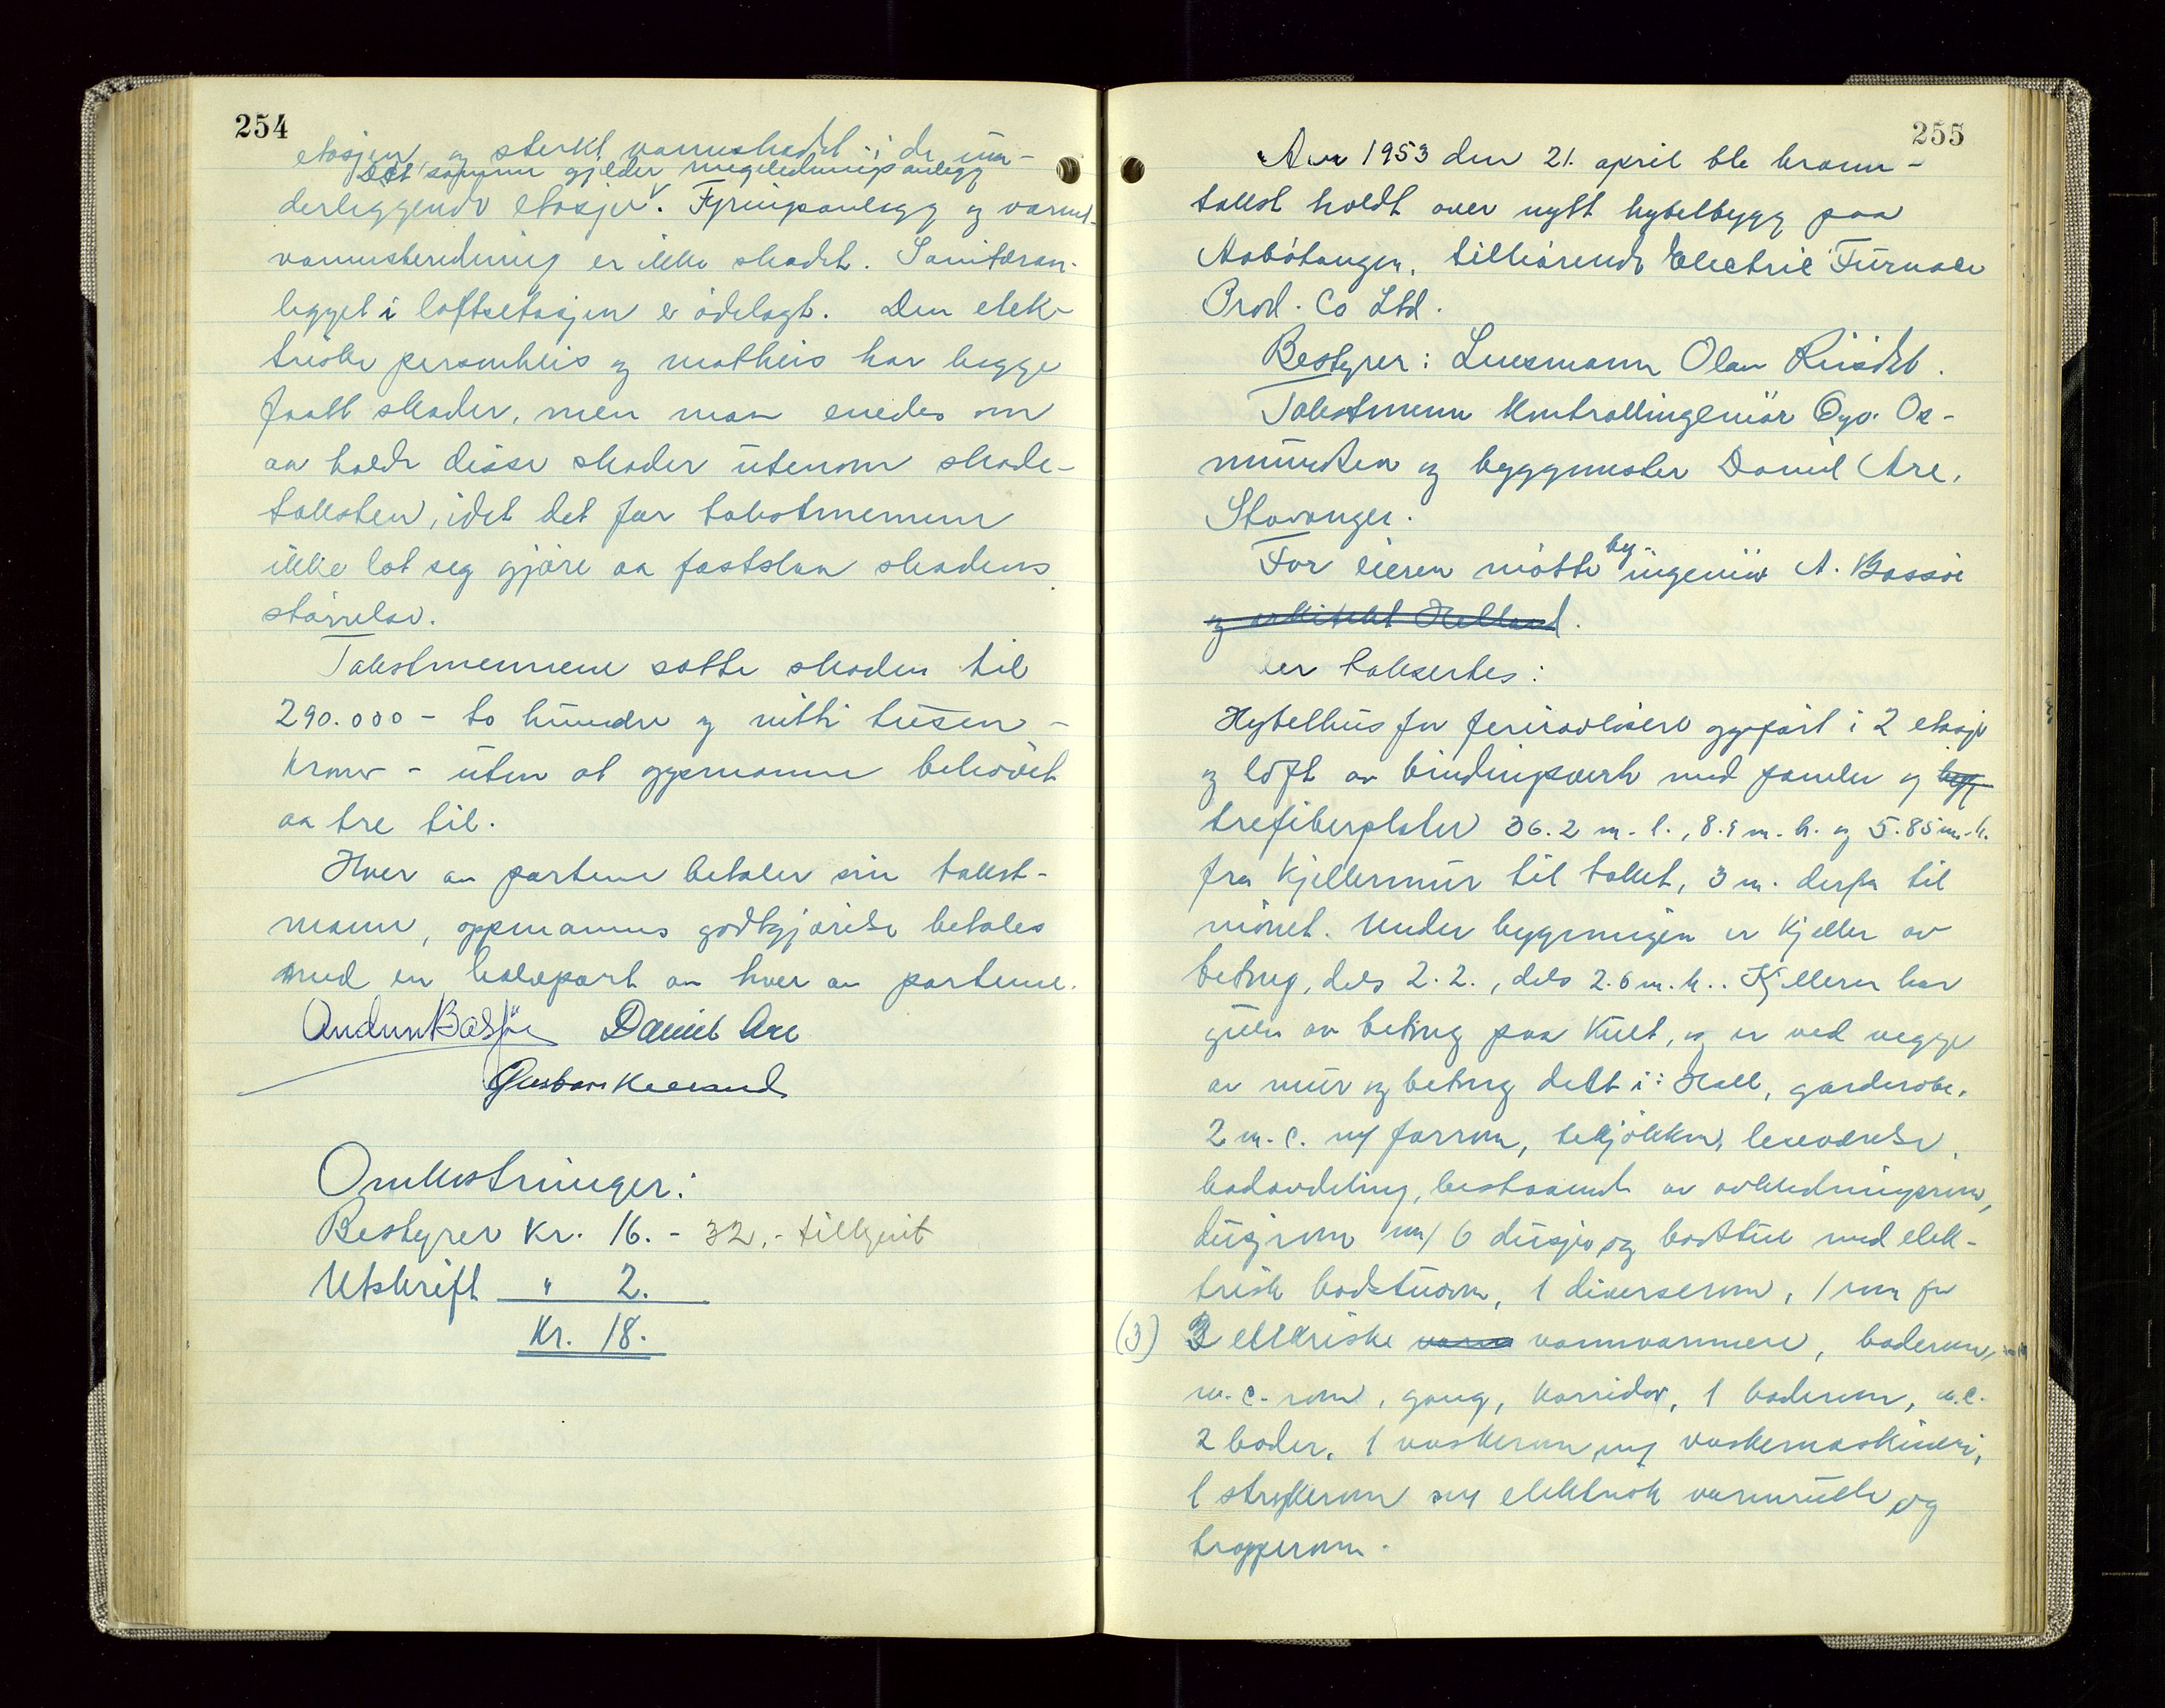 254
etasjen og sterkt vannskadet i de un-
Det samme gjelder ringeledningsanlegg
derliggende etasjer. Fyringsanlegg og varmt-
vannsberedning er ikke skadet. Sanitæran-
legget i loftsetasjen er ödelagt. Den elek-
triske personheis og matheis har begge
faatt skader, men man enedes om
aa holde disse skader utenom skade-
taksten, idet det for takstmennene
ikke lot seg gjöre aa fastslaa skadens
störrelse.
Takstmennene satte skaden til
290.000 - to hundre og nitti tusen -
kroner - uten at oppmannen behövet
aa tre til.
Hver av partene betaler sin takst-
mann, oppmannens godtgjörelse betales
med en halvpart av hver av partene.
Audun Bassöe Daniel Are
Gustav
Omkostninger:
Bestyrer Kr. 16. - 32.- tillignit
Utskrift " 2.
Kr. 18.
255
Aar 1953 den 21. april ble brann-
takst holdt over nytt hybelbygg paa
Aabötangen, tilhörende Electric Furnace
Prod. Co Ltd.
Bestyrer: Lensmann Olav Riisdal.
Takstmenn kontrollingeniör Ogv. Os-
mundsen og byggmester Daniel Are,
Stavanger.
by-
For eieren mötte ingeniör A. Bassöe
og arkitekt Helland.
Der takseredes:
Hybelhus for funksjonærer oppfört i 2 etasjer
og loft av bindingsverk med paneler og bygg
trefiberplater 36.2 m. l., 8.9 m. b. og 5.85 m. h.
fra kjellermur til taket, 3 m. derfra til
mönet. Under bygningen er kjeller av
betong, dels 2.2., dels 2.6 m. h.. Kjelleren har
gulv av betong paa kult, og er ved vegger
av mur og betong delt i: Hall, garderobe,
2 w. c. m/ forrom, tekjökken, leseværelse,
badavdeling, bestaaende av avkledningsrom,
dusjrom m/ 6 dusjer og badstue med elek-
trisk badstuovn, 1 diverserom, 1 rom for
(3) 3 elektriske varm vannvarmere, baderom,
w. c. rom, gang, korridor, 1 baderom, w.c.
2 boder, 1 vaskerom m/ vaskemaskineri,
1 strykerom m/ elektrisk varmrulle og
trapperom.